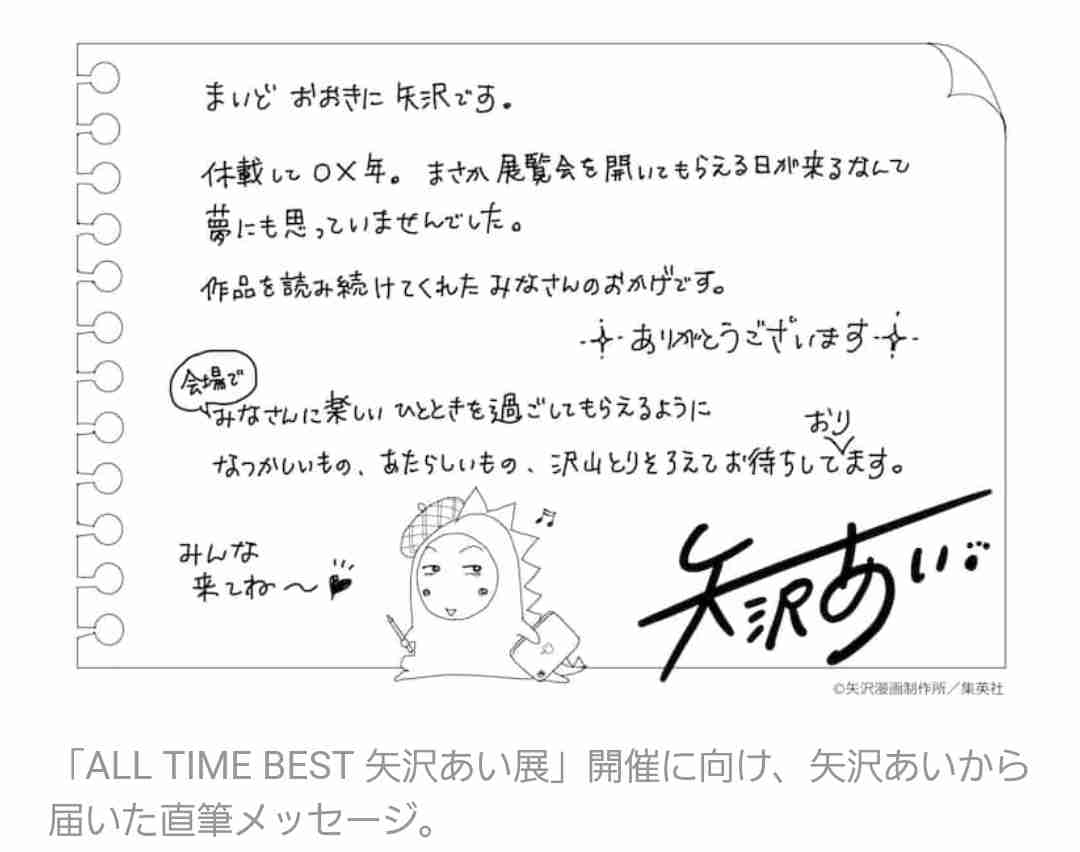 まいど おおきに 矢沢です。
休載して○×年。 まさか 展覧会を開いてもらえる日が来るなんて
夢にも思っていませんでした。
作品を読み続けてくれた みなさんのおかげです。
ありがとうございます
会場で
みなさんに楽しい ひとときを過ごしてもらえるように
おり
なつかしいもの、あたらしいもの、沢山とりそろえてお待ちしてます。
みんな
来てね〜
矢沢あい
©矢沢漫画制作所／集英社
「ALL TIME BEST 矢沢あい展」開催に向け、矢沢あいから
届いた直筆メッセージ。